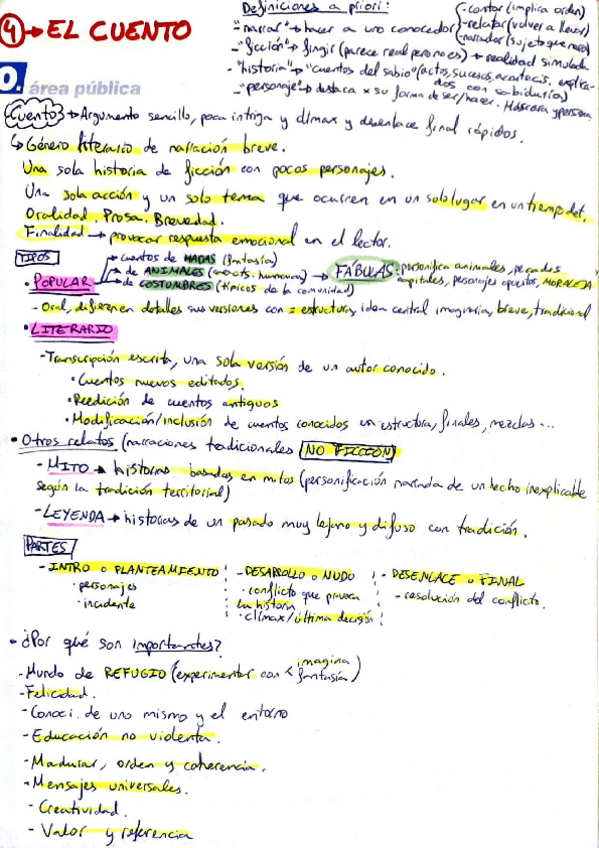 ④→EL CUENTO
Definiciones a priori:
-"narrar"→hacer a uno conocedor
-contar (implica orden)
-relatar (volver a llevar)
-narrador (sujeto que narra)
-"ficción"→fingir (parece real pero no es)→realidad simulada
-"historia"→"cuentos del sabio" (actos, sucesos, acontecis. explica-
dos con sabiduría)
-"personaje"→destaca x su forma de ser/hacer. Máscara y persona
O. área pública
Cuento→Argumento sencillo, poca intriga y clímax y desenlace final rápidos.
↳Género literario de narración breve.
Una sola historia de ficción con pocos personajes.
Una sola acción y un solo tema que ocurren en un solo lugar en un tiempo det.
Oralidad. Prosa. Brevedad.
Finalidad→provocar respuesta emocional en el lector.
TIPOS
• POPULAR
→cuentos de HADAS (fantasía)
→de ANIMALES (caracts. humanas)→FÁBULAS: personifica animales, pecados
capitales, personajes opuestos, MORALEJA
→de COSTUMBRES (típicos de la comunidad)
-Oral, difieren en detalles sus versiones con = estructura, idea central imaginaria, breve, tradicional
• LITERARIO
-Transcripción escrita, una sola versión de un autor conocido.
• Cuentos nuevos editados.
• Reedición de cuentos antiguos
• Modificación/inclusión de cuentos conocidos en estructura, finales, mezclas...
• Otros relatos (narraciones tradicionales NO FICCIÓN)
-MITO→historias basadas en mitos (personificación narrada de un hecho inexplicable
según la tradición territorial)
-LEYENDA→historias de un pasado muy lejano y difuso con tradición.
PARTES
-INTRO o PLANTEAMIENTO
• personajes
• incidente
-DESARROLLO o NUDO
• conflicto que provoca
la historia
• clímax/última decisión
-DESENLACE o FINAL
-resolución del conflicto.
• ¿Por qué son importantes?
-Mundo de REFUGIO (experimentar con < imagina
fantasía)
-Felicidad.
-Conoci. de uno mismo y el entorno
-Educación no violenta.
-Madurar, orden y coherencia.
-Mensajes universales.
-Creatividad.
-Valor y referencia